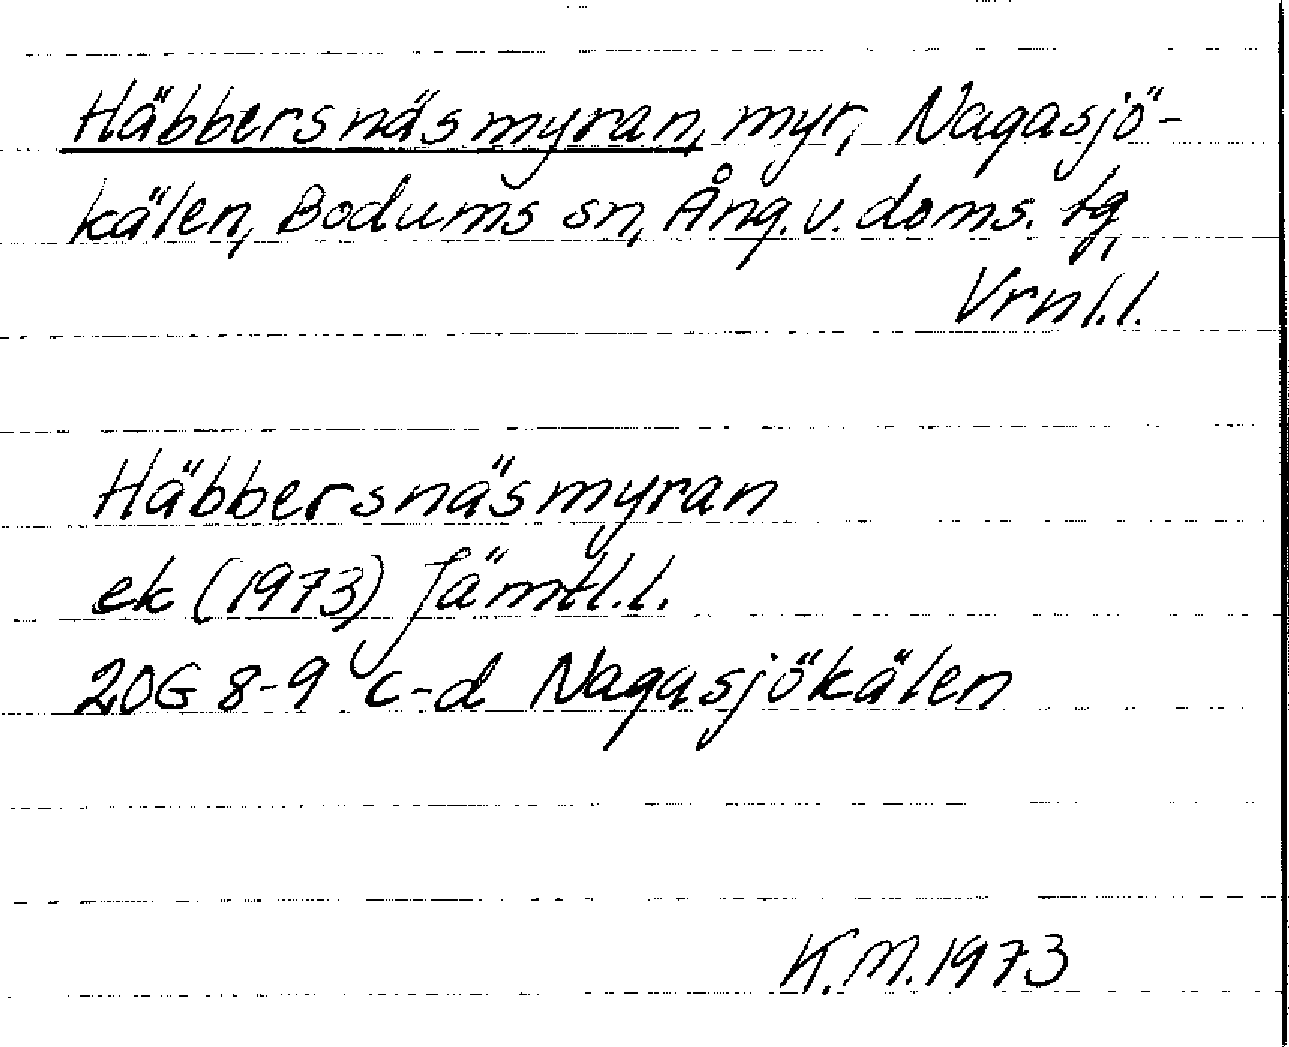 Häbbersnäsmyran, myr, Nagasjö-
kälen, Bodums sn, Ång. v. doms. tg,
Vrnl.l.
Häbbersnäsmyran
ek (1973) Jämtl.l.
20G 8-9 c-d Nagasjökälen
K.M. 1973